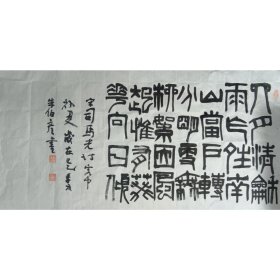 四月清龢
雨乍晴南
山當戶轉
分明更無
柳絮因風
起惟有葵
花向日傾
宋司馬光詩客中
初夏歲在
書